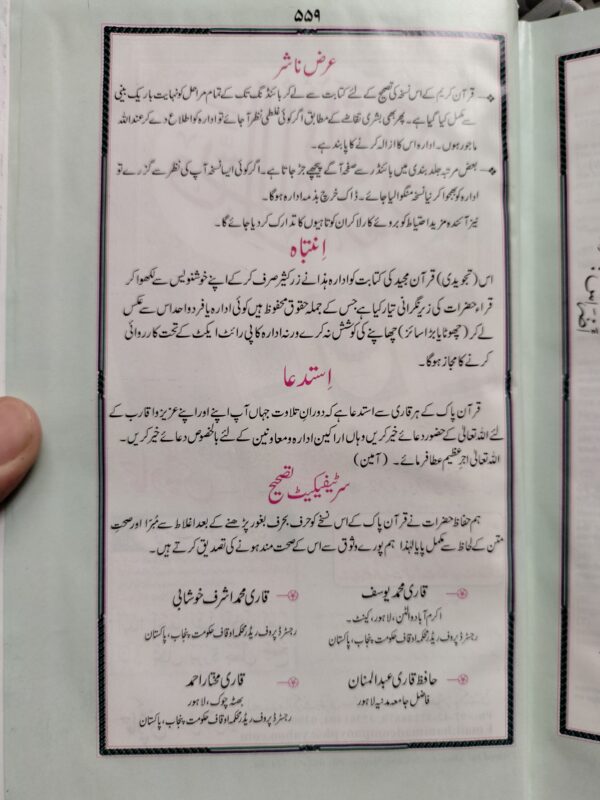 ۵۵۹
عرض ناشر
قرآن کریم کے اس نسخہ کی تصحیح کے لئے کتابت سے لے کر بائنڈنگ تک کے تمام مراحل کو نہایت باریک بینی
سے مکمل کیا گیا ہے۔ پھر بھی بشری تقاضے کے مطابق اگر کوئی غلطی نظر آ جائے تو ادارہ کو اطلاع دے کر عنداللہ
ماجور ہوں۔ ادارہ اس کا ازالہ کرنے کا پابند ہے۔
بعض مرتبہ جلد بندی میں بائنڈر سے صفحہ آگے پیچھے جڑ جاتا ہے۔ اگر کوئی ایسا نسخہ آپ کی نظر سے گزرے تو
ادارہ کو بھجوا کر نیا نسخہ منگوا لیا جائے۔ ڈاک خرچ بذمہ ادارہ ہوگا۔
نیز آئندہ مزید احتیاط کو بروئے کار لا کر ان کوتاہیوں کا تدارک کر دیا جائے گا۔
اِنتباہ
اس (تجویدی) قرآن مجید کی کتابت کو ادارہ ہذا نے زر کثیر صرف کر کے اپنے خوشنویس سے لکھوا کر
قراء حضرات کی زیر نگرانی تیار کیا ہے جس کے جملہ حقوق محفوظ ہیں کوئی ادارہ یا فرد واحد اس سے عکس
لے کر (چھوٹا یا بڑا سائز) چھاپنے کی کوشش نہ کرے ورنہ ادارہ کاپی رائٹ ایکٹ کے تحت کارروائی
کرنے کا مجاز ہوگا۔
اِستدعا
قرآن پاک کے ہر قاری سے استدعا ہے کہ دورانِ تلاوت جہاں آپ اپنے اور اپنے عزیز و اقارب کے
لئے اللہ تعالیٰ کے حضور دعائے خیر کریں وہاں اراکین ادارہ و معاونین کے لئے بالخصوص دعائے خیر کریں۔
اللہ تعالیٰ اجرِ عظیم عطا فرمائے۔ (آمین)
سرٹیفیکیٹ تصحیح
ہم حفاظ حضرات نے قرآن پاک کے اس نسخے کو حرف بحرف بغور پڑھنے کے بعد اغلاط سے مُبرّا اور صحتِ
متن کے لحاظ سے مکمل پایا لہٰذا ہم پورے وثوق سے اس کے صحت مند ہونے کی تصدیق کرتے ہیں۔
قاری محمد یوسف
اکرم آباد والٹن، لاہور، کینٹ۔
رجسٹرڈ پروف ریڈر محکمہ اوقاف حکومت پنجاب، پاکستان
قاری محمد اشرف خوشابی
رجسٹرڈ پروف ریڈر محکمہ اوقاف حکومت پنجاب، پاکستان
حافظ قاری عبدالمنان
فاضل جامعہ مدنیہ لاہور
قاری مختار احمد
بھٹہ چوک، لاہور
رجسٹرڈ پروف ریڈر محکمہ اوقاف حکومت پنجاب، پاکستان